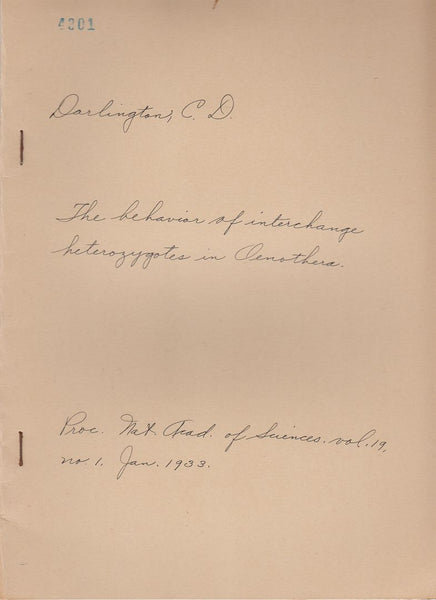 4301
Darlington, C. D.
The behavior of interchange
heterozygotes in Oenothera.
Proc. Nat. Acad. of Sciences. vol. 19,
no. 1. Jan. 1933.